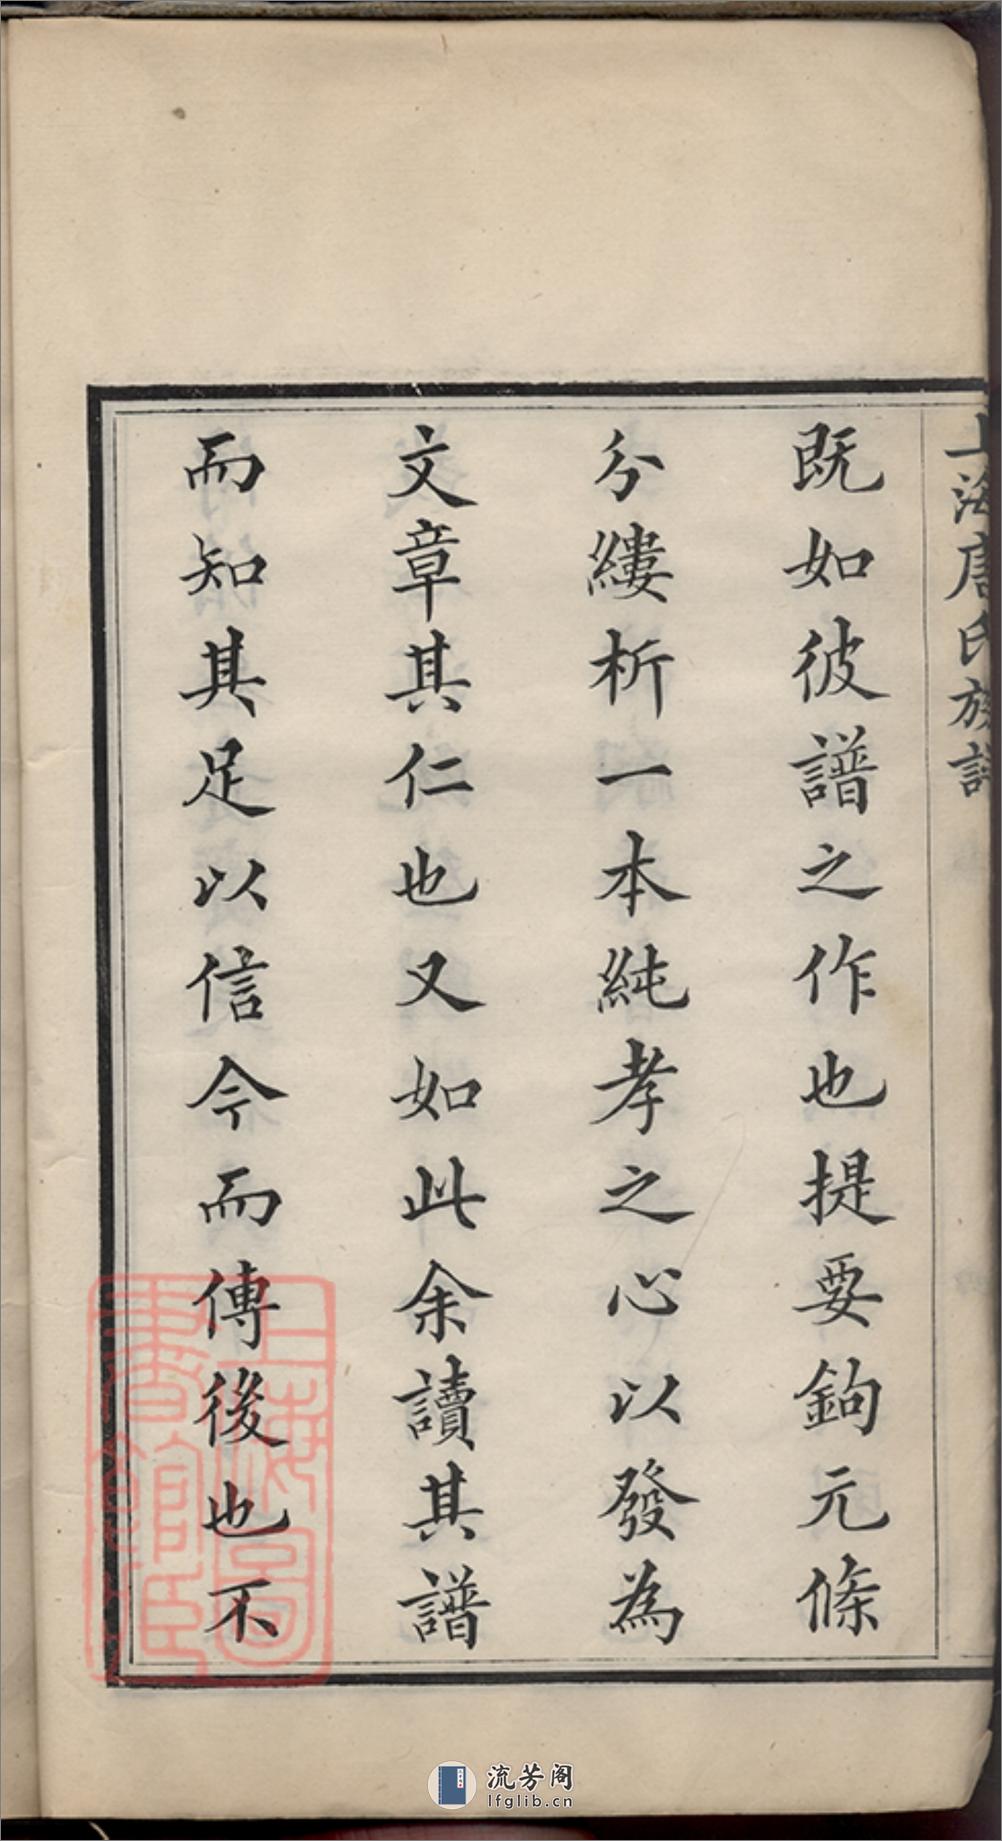 上海唐氏族譜
既如彼譜之作也提要鉤元條
分縷析一本純孝之心以發為
文章其仁也又如此余讀其譜
而知其足以信今而傳後也不
上海圖書館藏
流芳阁
lfglib.cn